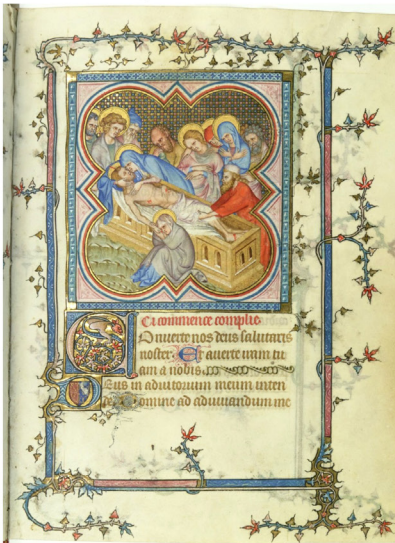 Ci commence complie
Onuerte nos deus salutaris
noster. Et auerte iram tu
am a nobis.
eus in adiutorium meum inten
de domine ad adiuuandum me